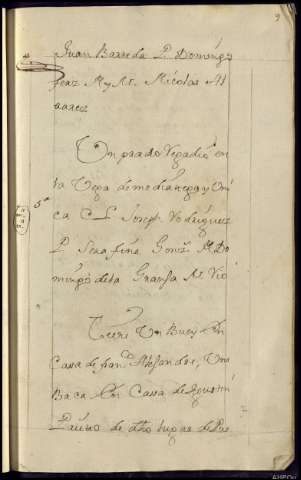 9
Juan Barreda P. Domingo
fern.z M y N. Nicolas Al
varez
Un prado Regadio en
la Vega de mediavega y Uni
5ª
ca L. Joseph Rodriguez
P. Serafina Gonz. M. Do
mingo de la Granja N. Rio
Tiene Un Buey En
Casa de fran.co Alejandre, Una
Baca En Cassa de Agustin
de dho lugar de